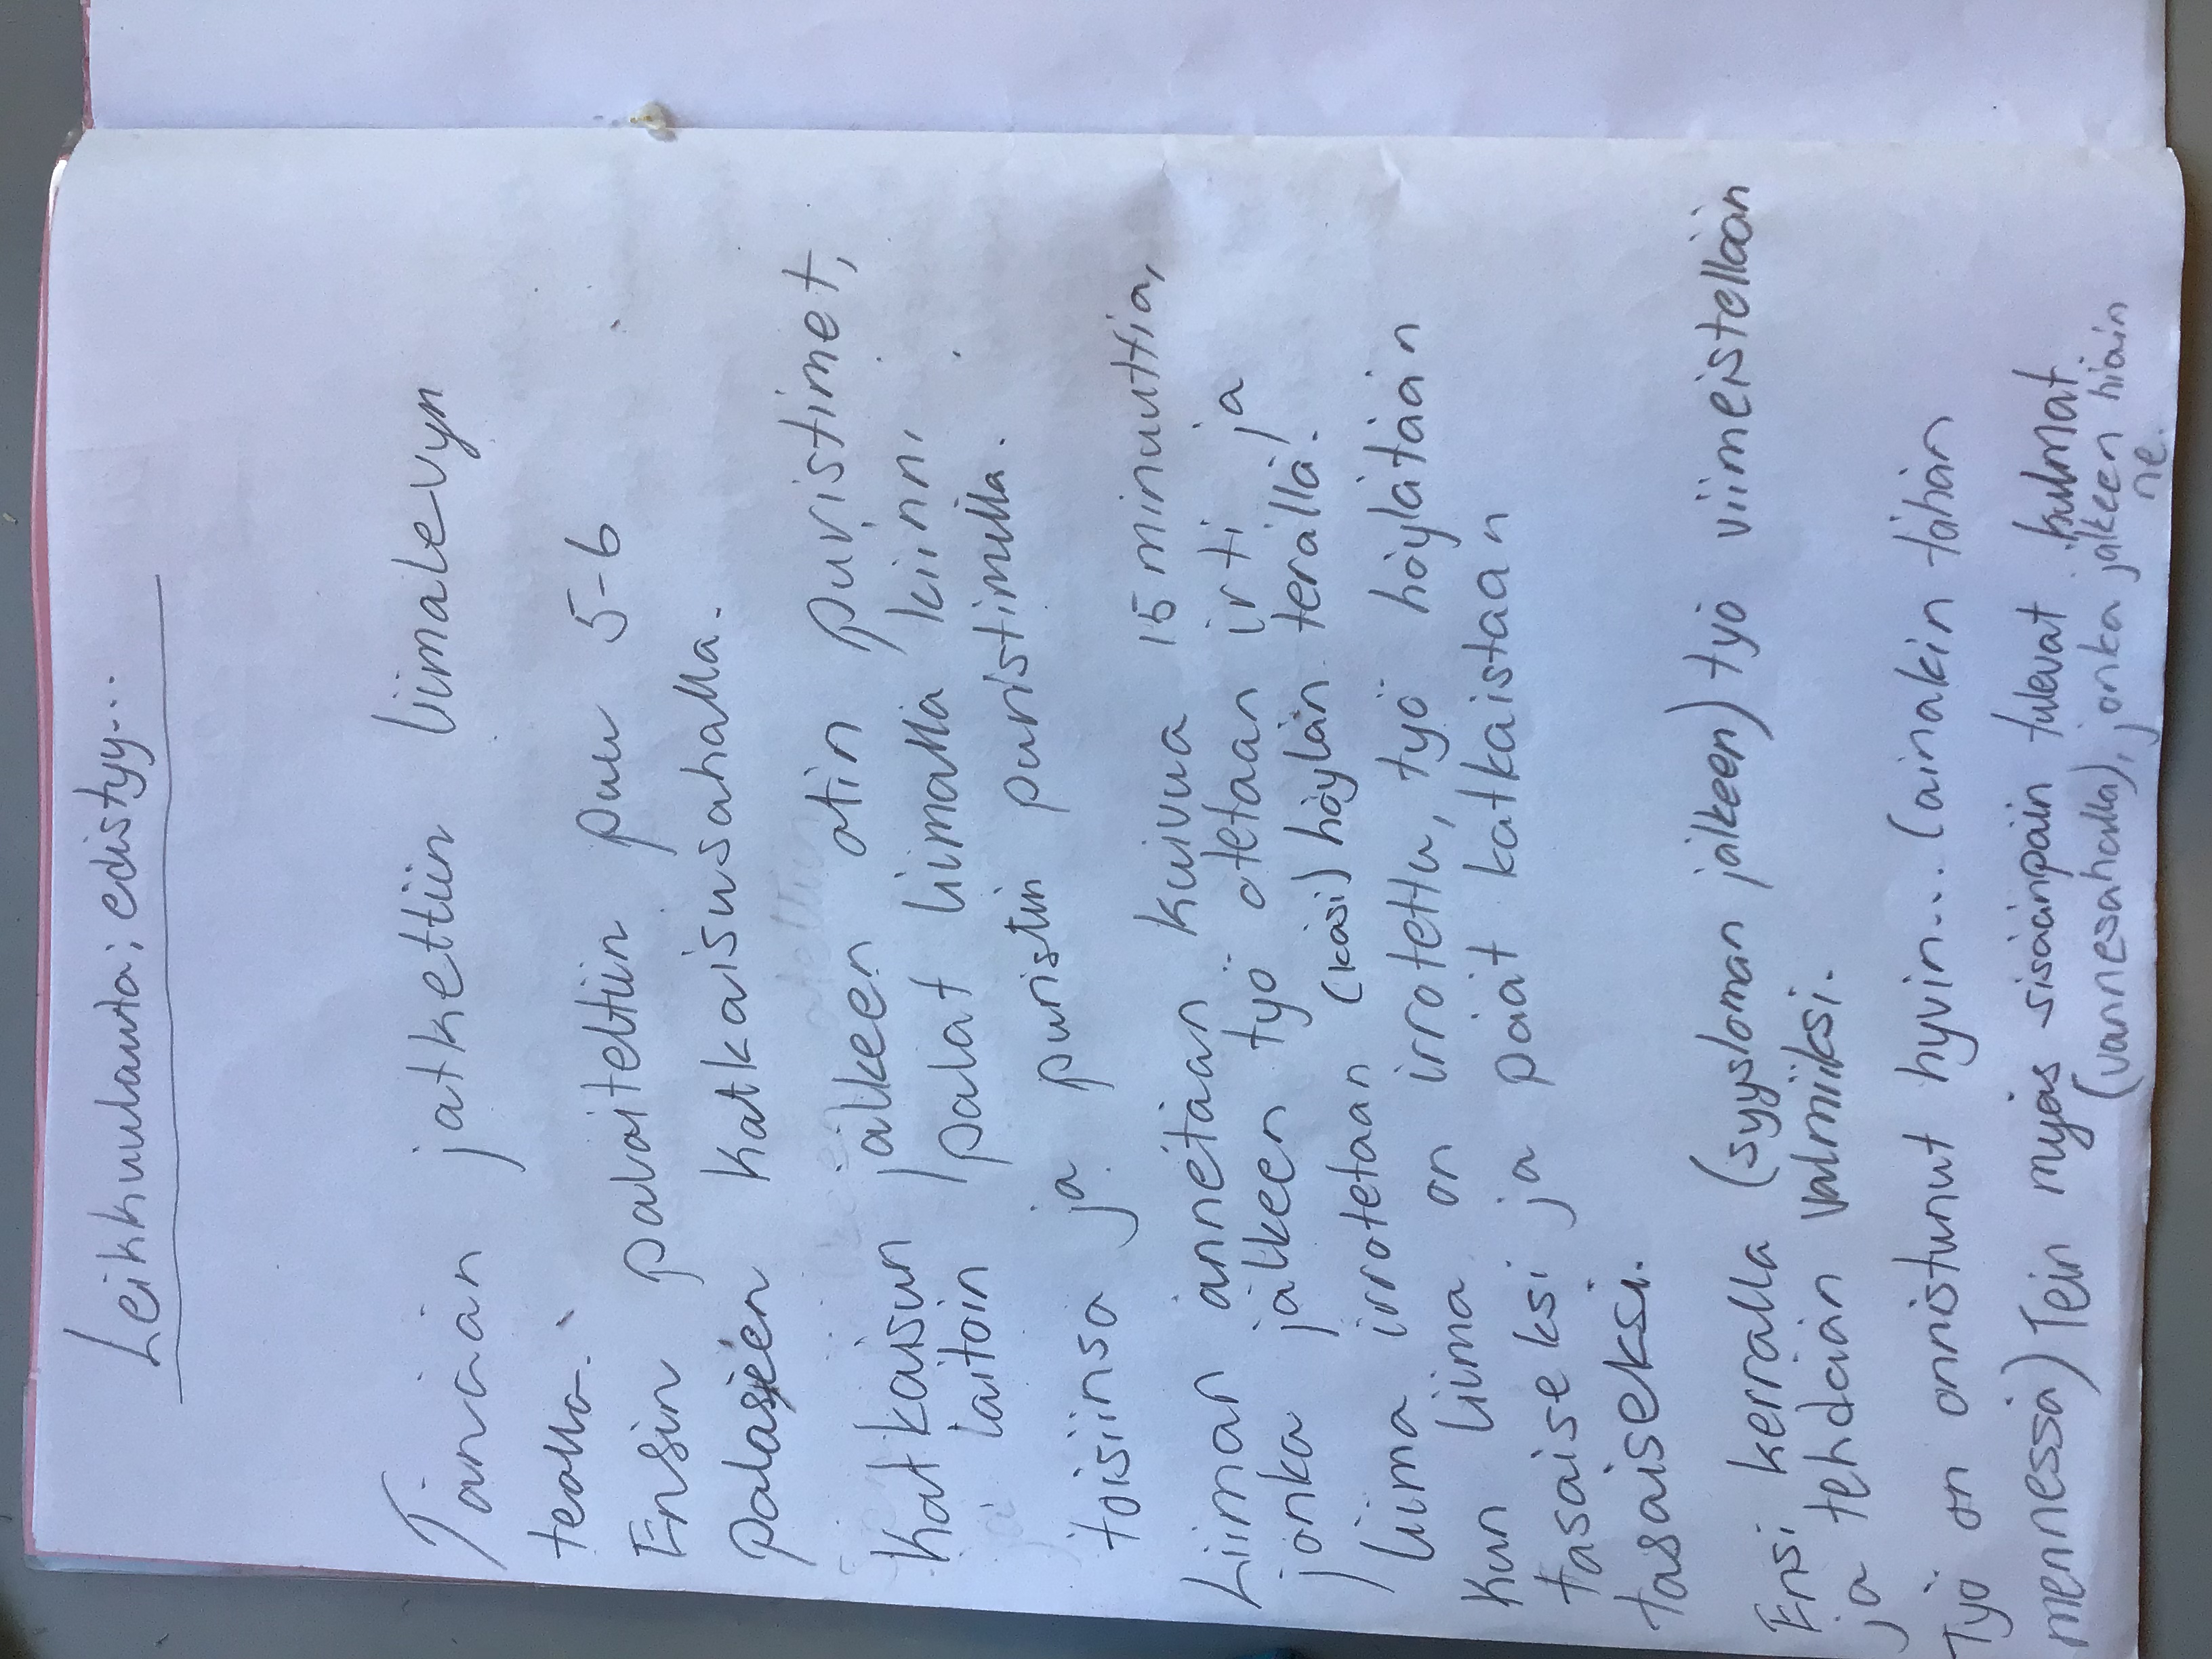 Leikkuulauta; edistyy...
Tänään jatkettiin liimalevyn
teolla.
Ensin palaiteltiin puu 5-6
palaseen katkaisusahalla.
Katkaisun jälkeen otin puristimet,
laitoin palat liimalla kiinni
toisiinsa ja puristin puristimilla.
Liiman annetaan kuivua 15 minuuttia,
jonka jälkeen työ otetaan irti ja
liima irrotetaan (käsi) höylän terällä.
Kun liima on irrotettu, työ höylätään
tasaiseksi ja päät katkaistaan
tasaiseksi.
Ensi kerralla (syysloman jälkeen) työ viimeistellään
ja tehdään valmiiksi.
Työ on onnistunut hyvin... (ainakin tähän
mennessä) Tein myös sisäänpäin tulevat kulmat
(vannesahalla), jonka jälkeen hioin
ne.